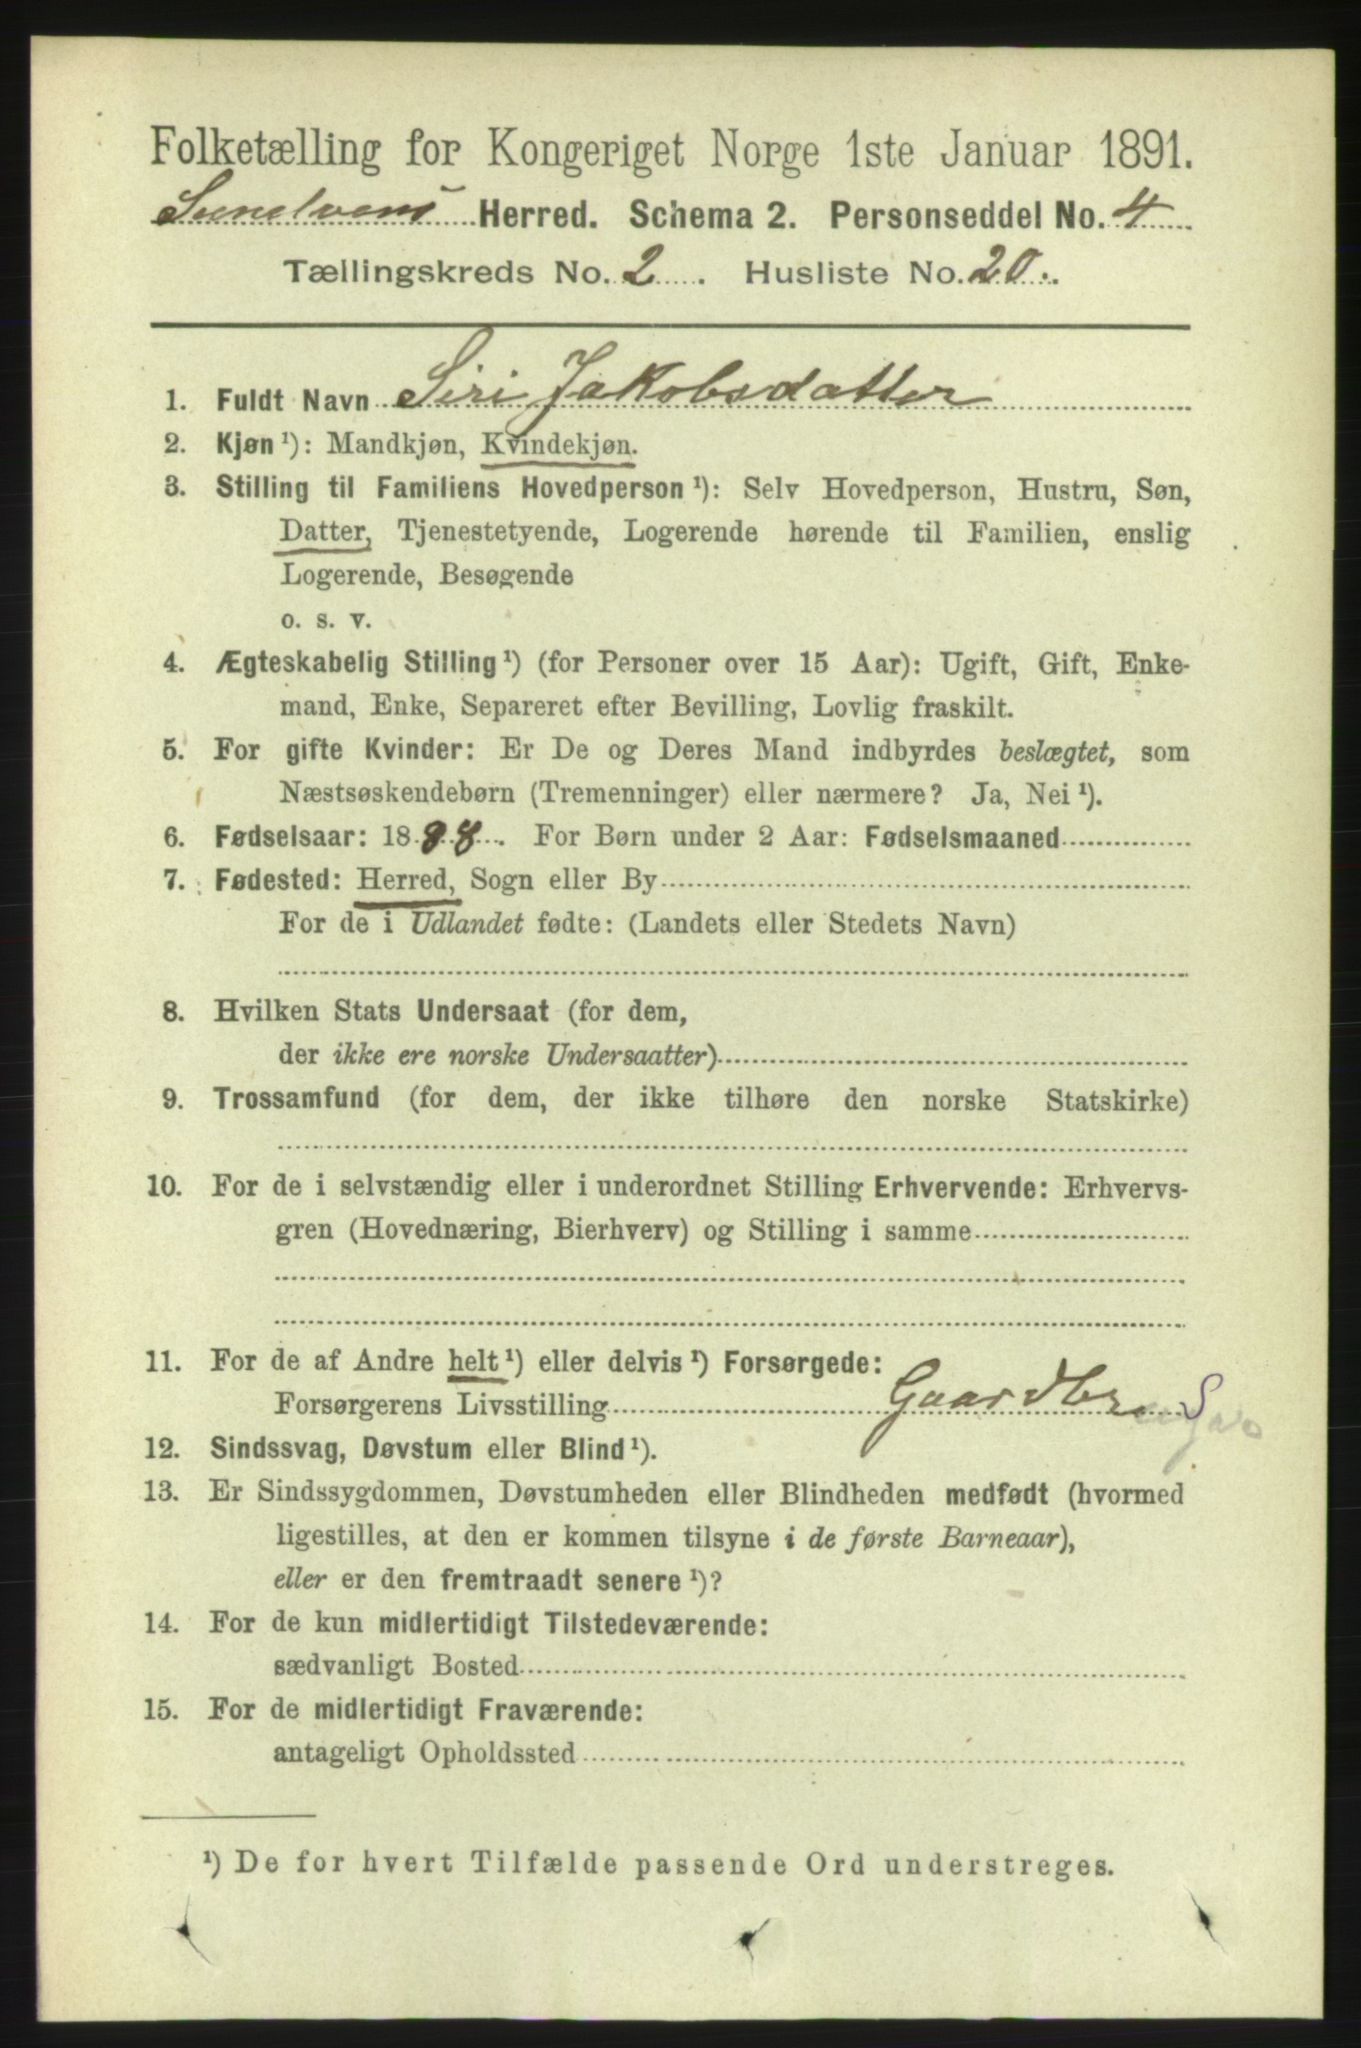 Folketælling for Kongeriget Norge 1ste Januar 1891.
Sundvens Herred. Schema 2. Personseddel No. 4
Tællingskreds No. 2. Husliste No. 20.
1. Fuldt Navn Siri Jakobsdatter
2. Kjøn¹): Mandkjøn, Kvindekjøn.
3. Stilling til Familiens Hovedperson¹): Selv Hovedperson, Hustru, Søn,
Datter, Tjenestetyende, Logerende hørende til Familien, enslig
Logerende, Besøgende
o. s. v.
4. Ægteskabelig Stilling¹) (for Personer over 15 Aar): Ugift, Gift, Enke-
mand, Enke, Separeret efter Bevilling, Lovlig fraskilt.
5. For gifte Kvinder: Er De og Deres Mand indbyrdes beslægtet, som
Næstsøskendebørn (Tremenninger) eller nærmere? Ja, Nei¹).
6. Fødselsaar: 1888. For Børn under 2 Aar: Fødselsmaaned
7. Fødested: Herred, Sogn eller By
For de i Udlandet fødte: (Landets eller Stedets Navn)
8. Hvilken Stats Undersaat (for dem,
der ikke ere norske Undersaatter)
9. Trossamfund (for dem, der ikke tilhøre den norske Statskirke)
10. For de i selvstændig eller i underordnet Stilling Erhvervende: Erhvervs-
gren (Hovednæring, Bierhverv) og Stilling i samme
11. For de af Andre helt¹) eller delvis¹) Forsørgede:
Forsørgerens Livsstilling Gaardbr S
12. Sindssvag, Døvstum eller Blind¹).
13. Er Sindssygdommen, Døvstumheden eller Blindheden medfødt (hvormed
ligestilles, at den er kommen tilsyne i de første Barneaar),
eller er den fremtraadt senere¹)?
14. For de kun midlertidigt Tilstedeværende:
sædvanligt Bosted
15. For de midlertidigt Fraværende:
antageligt Opholdssted
¹) De for hvert Tilfælde passende Ord understreges.